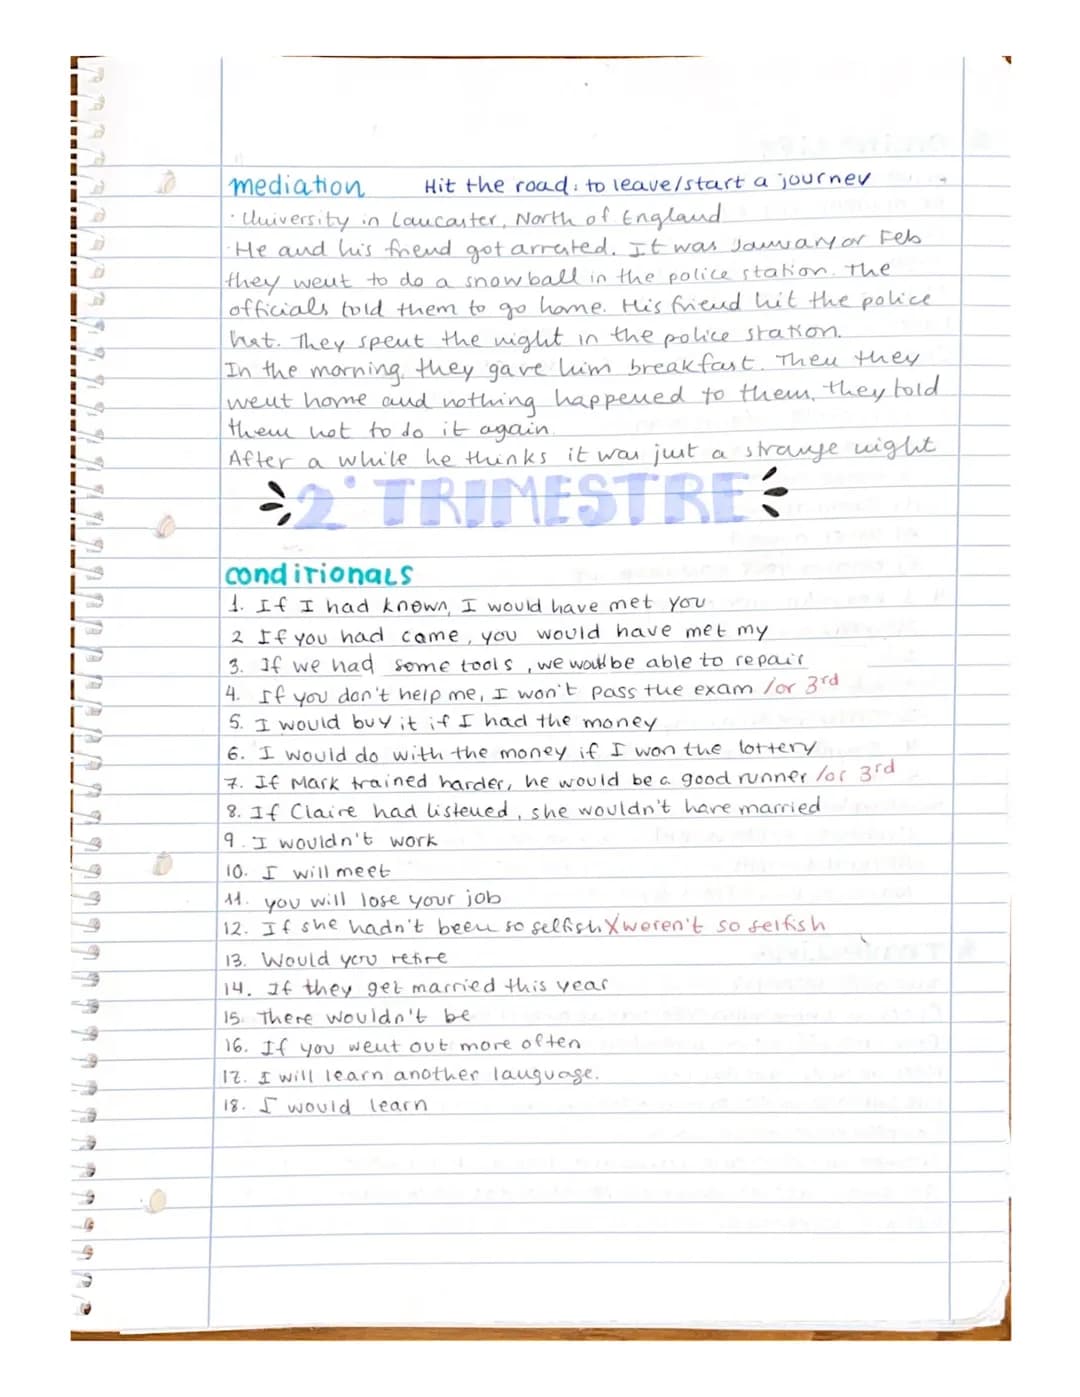 mediation Hit the road: to leave/start a journey
· University in Lancaster, North of England
· He and his friend got arrested. It was January or Feb
they went to do a snowball in the police station. The
officials told them to go home. His friend hit the police
hat. They spent the night in the police station.
In the morning, they gave him breakfast. Then they
went home and nothing happened to them, they told
them not to do it again.
After a while he thinks it was just a strange night
2° TRIMESTRE
conditionals
1. If I had known, I would have met you.
2 If you had came, you would have met my
3. If we had some tools, we would be able to repair
4. If you don't help me, I won't pass the exam /or 3rd
5. I would buy it if I had the money
6. I would do with the money if I won the lottery
7. If Mark trained harder, he would be a good runner /or 3rd
8. If Claire had listened, she wouldn't have married
9. I wouldn't work
10. I will meet
11. you will lose your job
12. If she hadn't been so selfish X weren't so selfish
13. Would you retire
14. If they get married this year
15. There wouldn't be
16. If you went out more often
17. I will learn another language.
18. I would learn